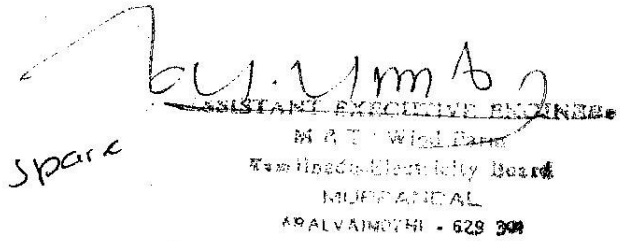 ASSISTANT EXECUTIVE ENGINEER
M A T Wind Farm
Tamilnadu Electricity Board
MUPPANDAL
ARALVAIMOZHI - 629 301
spare